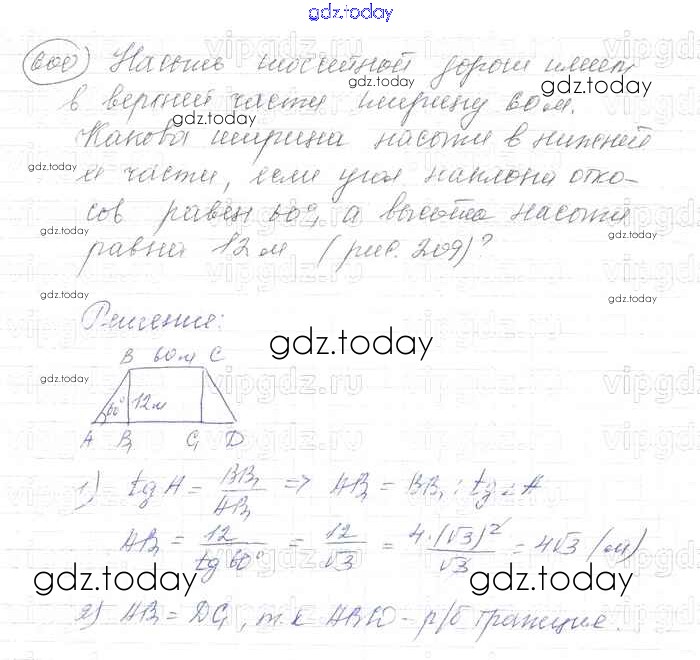 gdz.today
600) Насыпь шоссейной дороги имеет
в верхней части ширину 60 м.
Какова ширина насыпи в нижней
её части, если угол наклона отко-
сов равен 60°, а высота насыпи
равна 12 м (рис. 209)?
Решение:
B 60 м C
60° 12 м
A B₁ C₁ D
1) tg A = BB₁/AB₁ => AB₁ = BB₁ : tg ∠A
AB₁ = 12/tg 60° = 12/√3 = 4·(√3)²/√3 = 4√3 (м)
2) AB₁ = DC₁, т.к. ABCD - р/б трапеция.